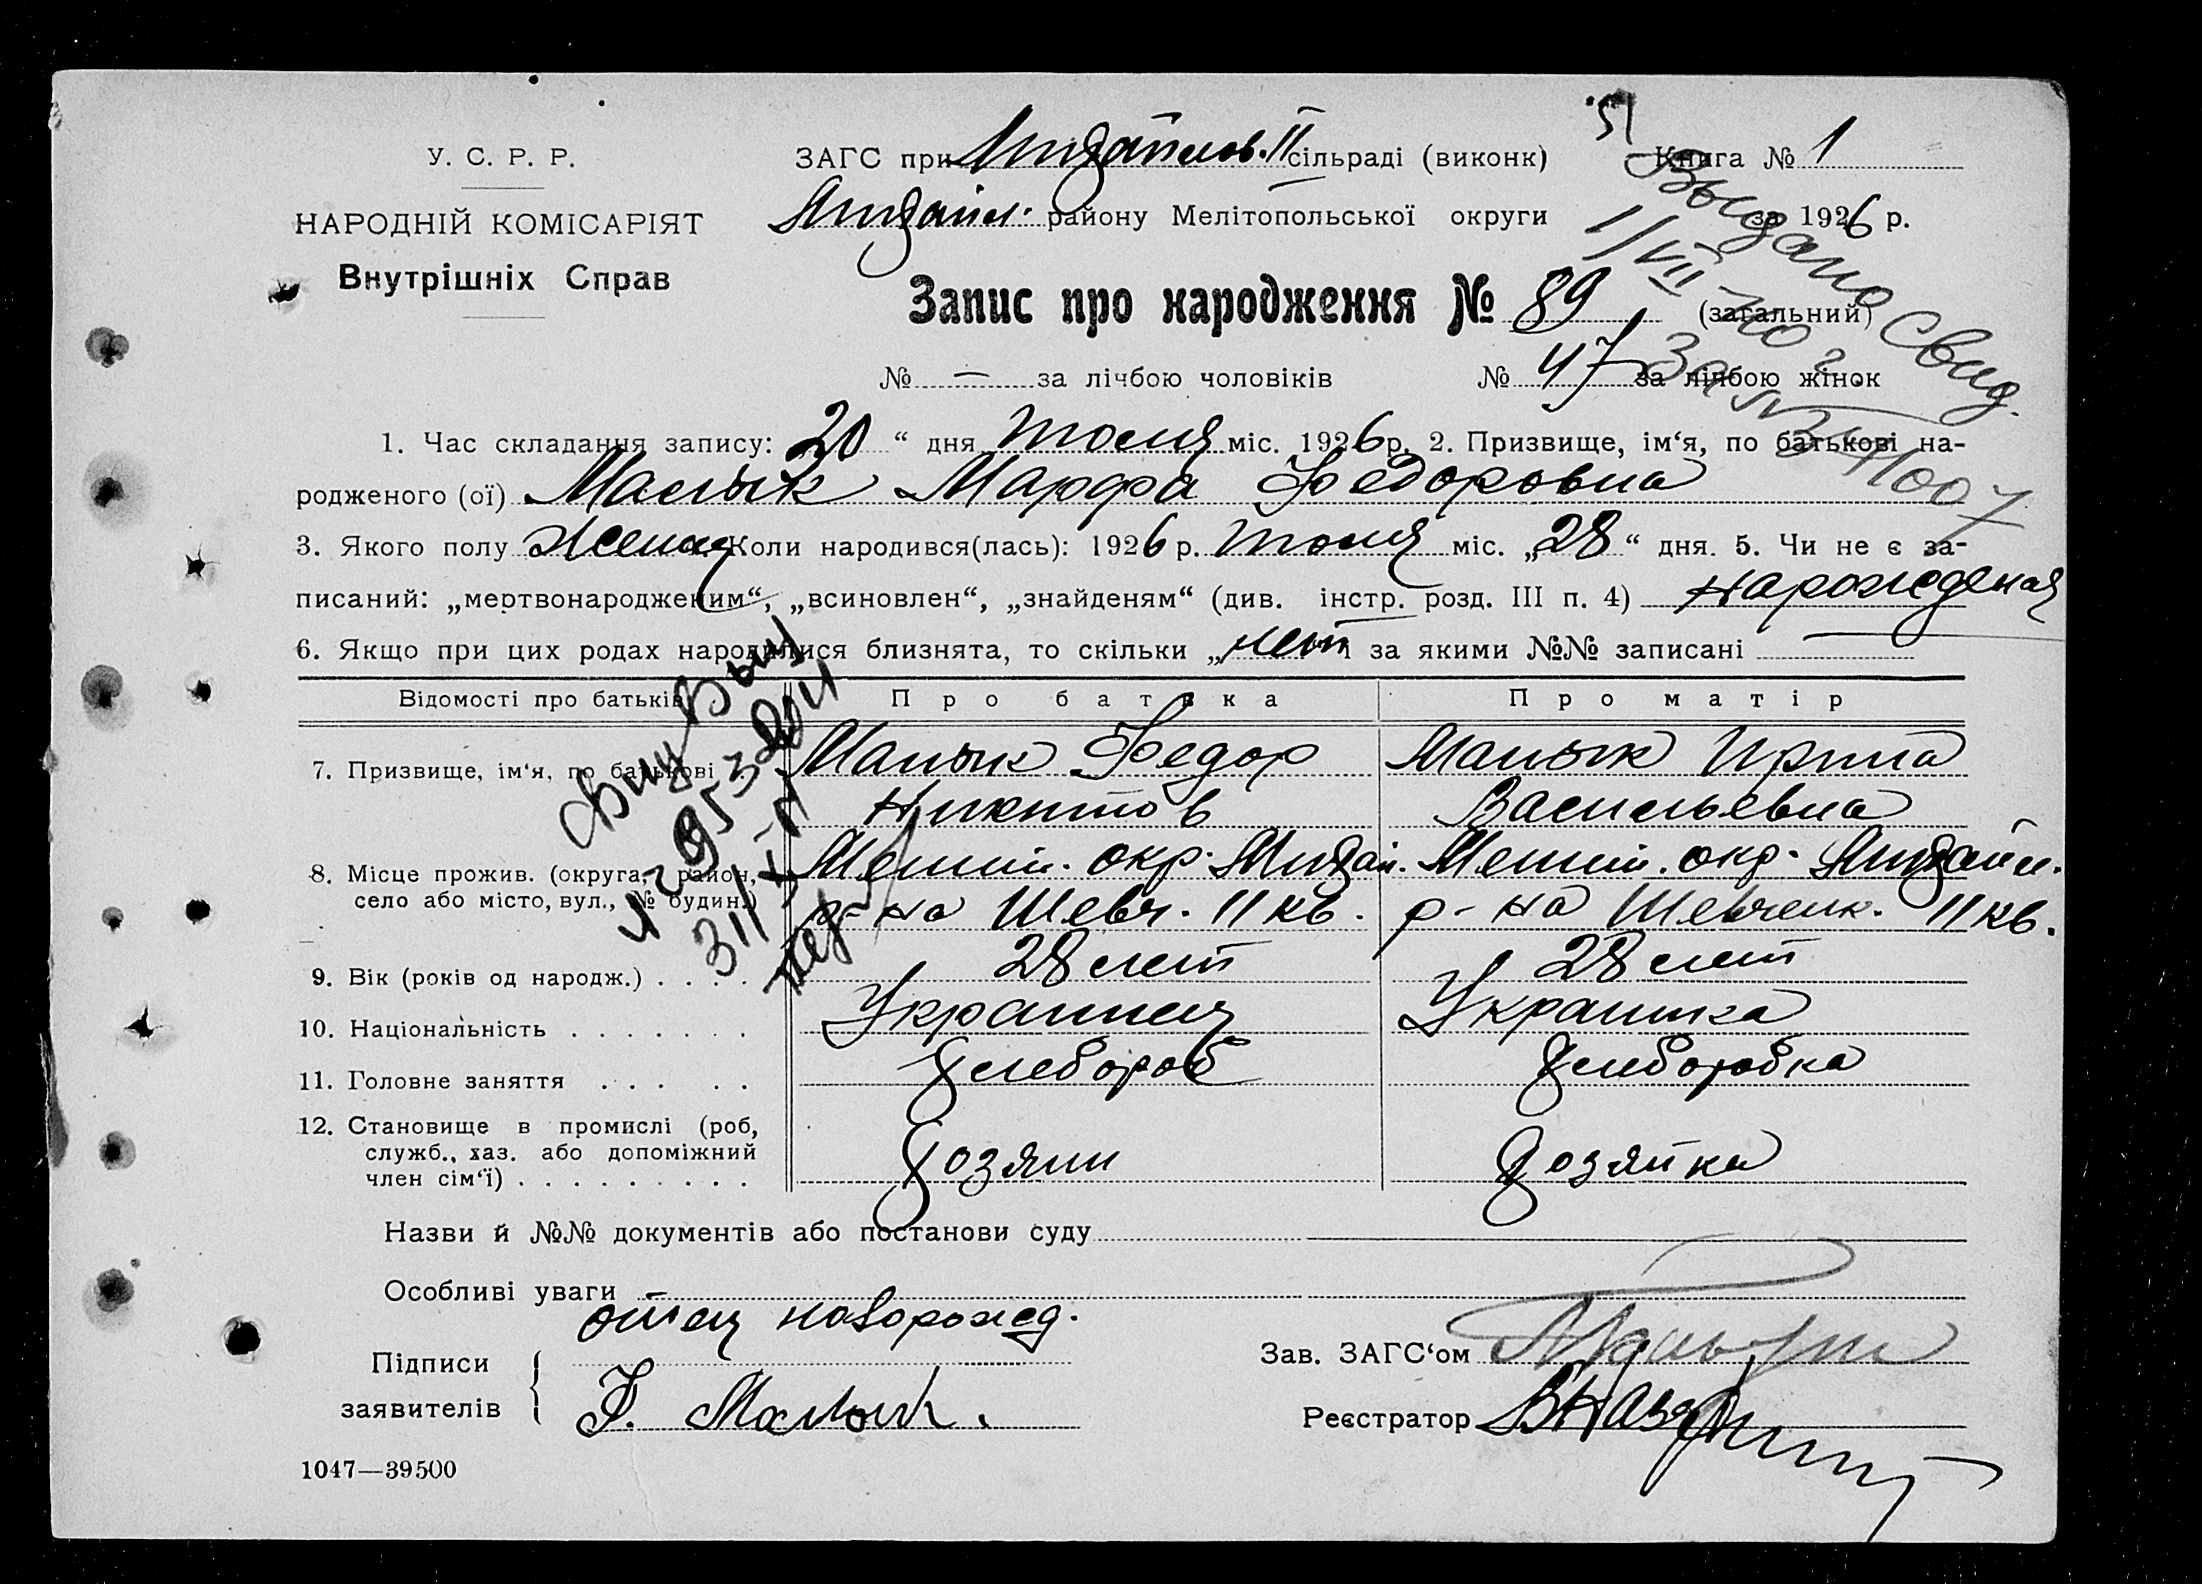 У. С. Р. Р.
НАРОДНІЙ КОМІСАРІЯТ
Внутрішніх Справ
ЗАГС при Михайлов. II сільраді (виконк)
Михайл. району Мелітопольської округи
Книга № 1
за 1926 р.
Запис про народження № 89 (загальний)
№ — за лічбою чоловіків № 47 за лічбою жінок
Выдано Свид.
1/VII
1. Час складання запису: 30 “ дня Июля міс. 1926 р. 2. Призвище, ім‘я, по батькові на-
родженого (ої) Малык Марфа Федоровна
3. Якого полу Женск Коли народився(лась): 1926 р. Июля міс. „28“ дня. 5. Чи не є за-
писаний: „мертвонародженим“, „всиновлен“, „знайденям“ (див. інстр. розд. III п. 4) нарожденая
6. Якщо при цих родах народилися близнята, то скільки „нет і за якими №№ записані
Відомості про батьків Про батька Про матір
7. Призвище, ім‘я, по батькові Малык Федор Малык Ирина
Никитов Васильевна
8. Місце прожив. (округа, район, Мелит. окр. Михай. Мелит. окр. Михайл.
село або місто, вул., № будин.) р-на Шевч. 11 кв. р-на Шевченк. 11 кв.
9. Вік (років од народж.) . . . . 28 лет 28 лет
10. Національність . . . . . . . Украинец Украинка
11. Головне заняття . . . . . Хлебороб Хлеборобка
12. Становище в промислі (роб,
служб., хаз. або допоміжний
член сім‘ї) . . . . . . . . . Хозяин Хозяйка
Назви й №№ документів або постанови суду
Особливі уваги
отец новорожед.
Підписи
заявителів
Ф. Малык.
Зав. ЗАГС‘ом
Реєстратор
1047—39500